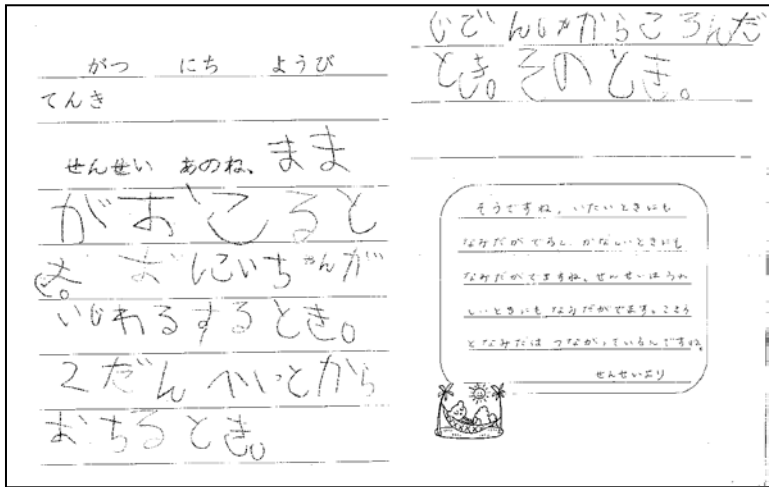 がつ にち ようび
てんき
せんせい あのね、まま
がおこると
き。おにいちゃんが
いじわるするとき。
2だんべいとから
おちるとき。
じでんしゃからころんだ
とき。そのとき。
そうですね。いたいときにも
なみだがでるし、かなしいときにも
なみだがでますね。せんせいはうれ
しいときにもなみだがでます。こころ
となみだは つながっているんですね。
せんせいより